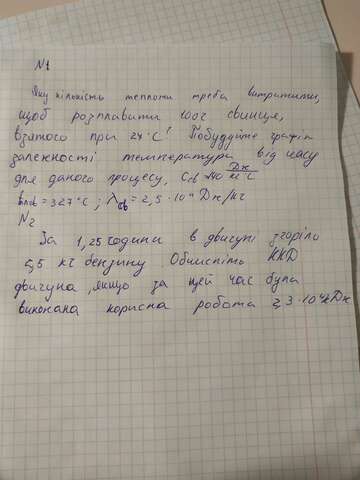 N1
Яку кількість теплоти треба витратити,
щоб розплавити 100г свинцю,
взятого при 27°C! Побудуйте графік
залежності температури від часу
для даного процесу, Cсв 140 Дж/кг°C
tпл = 327°C; λсв = 2,5·10⁴ Дж/кг
N2
За 1,25 години в двигуні згоріло
5,5 кг бензину Обчисліть ККД
двигуна, якщо за цей час була
виконана корисна робота 2,3·10⁴кДж